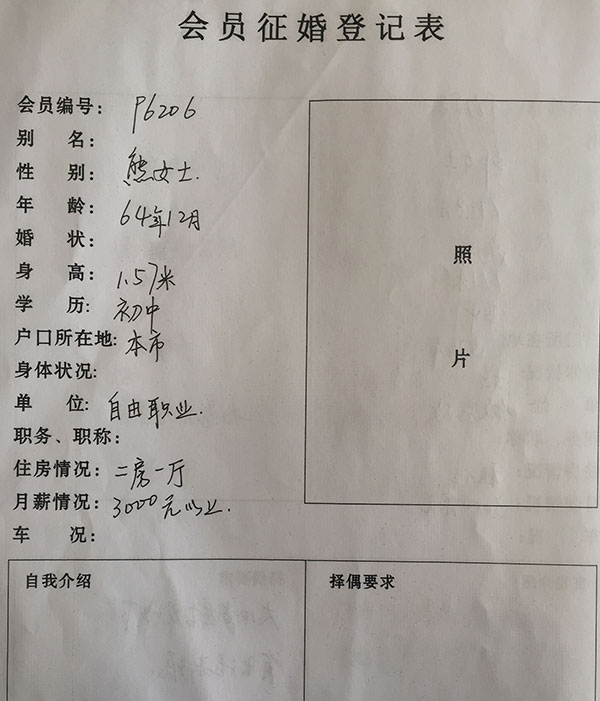 会员征婚登记表
会员编号: P6206
别 名:
性 别: 熊女士.
年 龄: 64年12月
婚 状:
身 高: 1.57米
学 历: 初中
户口所在地: 本市
身体状况:
单 位: 自由职业.
职务、职称:
住房情况: 二房一厅
月薪情况: 3000元以上.
车 况:
照
片
自我介绍
择偶要求